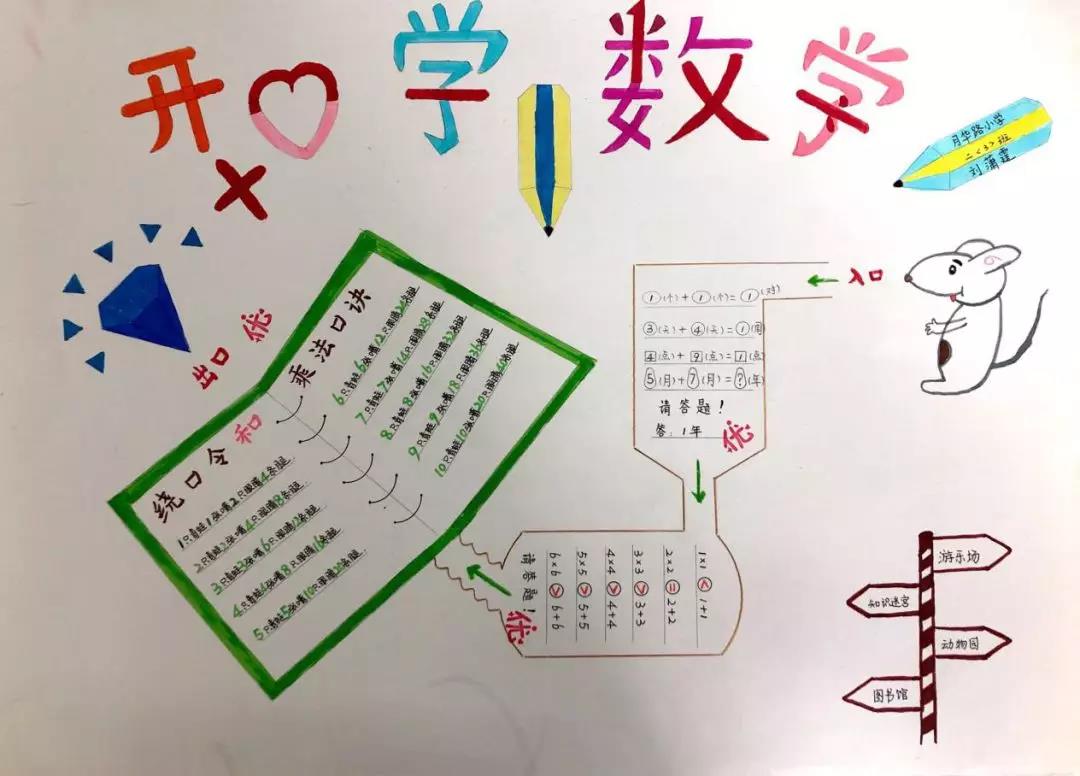 开口学数学
月华路小学
二<3>班
刘蒲霆
入口
①(个)+①(个)=①(对)
③(天)+④(天)=①(周)
4(点)+9(点)=1(点)
5(月)+7(月)=?(年)
请答题!
答:1年
优
1×1<1+1
2×2=2+2
3×3>3+3
4×4>4+4
5×5>5+5
6×6>6+6
请答题!
优
绕口令
和
乘法口诀
1只青蛙1张嘴2只眼睛4条腿
2只青蛙2张嘴4只眼睛8条腿
3只青蛙3张嘴6只眼睛12条腿
4只青蛙4张嘴8只眼睛16条腿
5只青蛙5张嘴10只眼睛20条腿
6只青蛙6张嘴12只眼睛24条腿
7只青蛙7张嘴14只眼睛28条腿
8只青蛙8张嘴16只眼睛32条腿
9只青蛙9张嘴18只眼睛36条腿
10只青蛙10张嘴20只眼睛40条腿
出口
优
游乐场
知识迷宫
动物园
图书馆